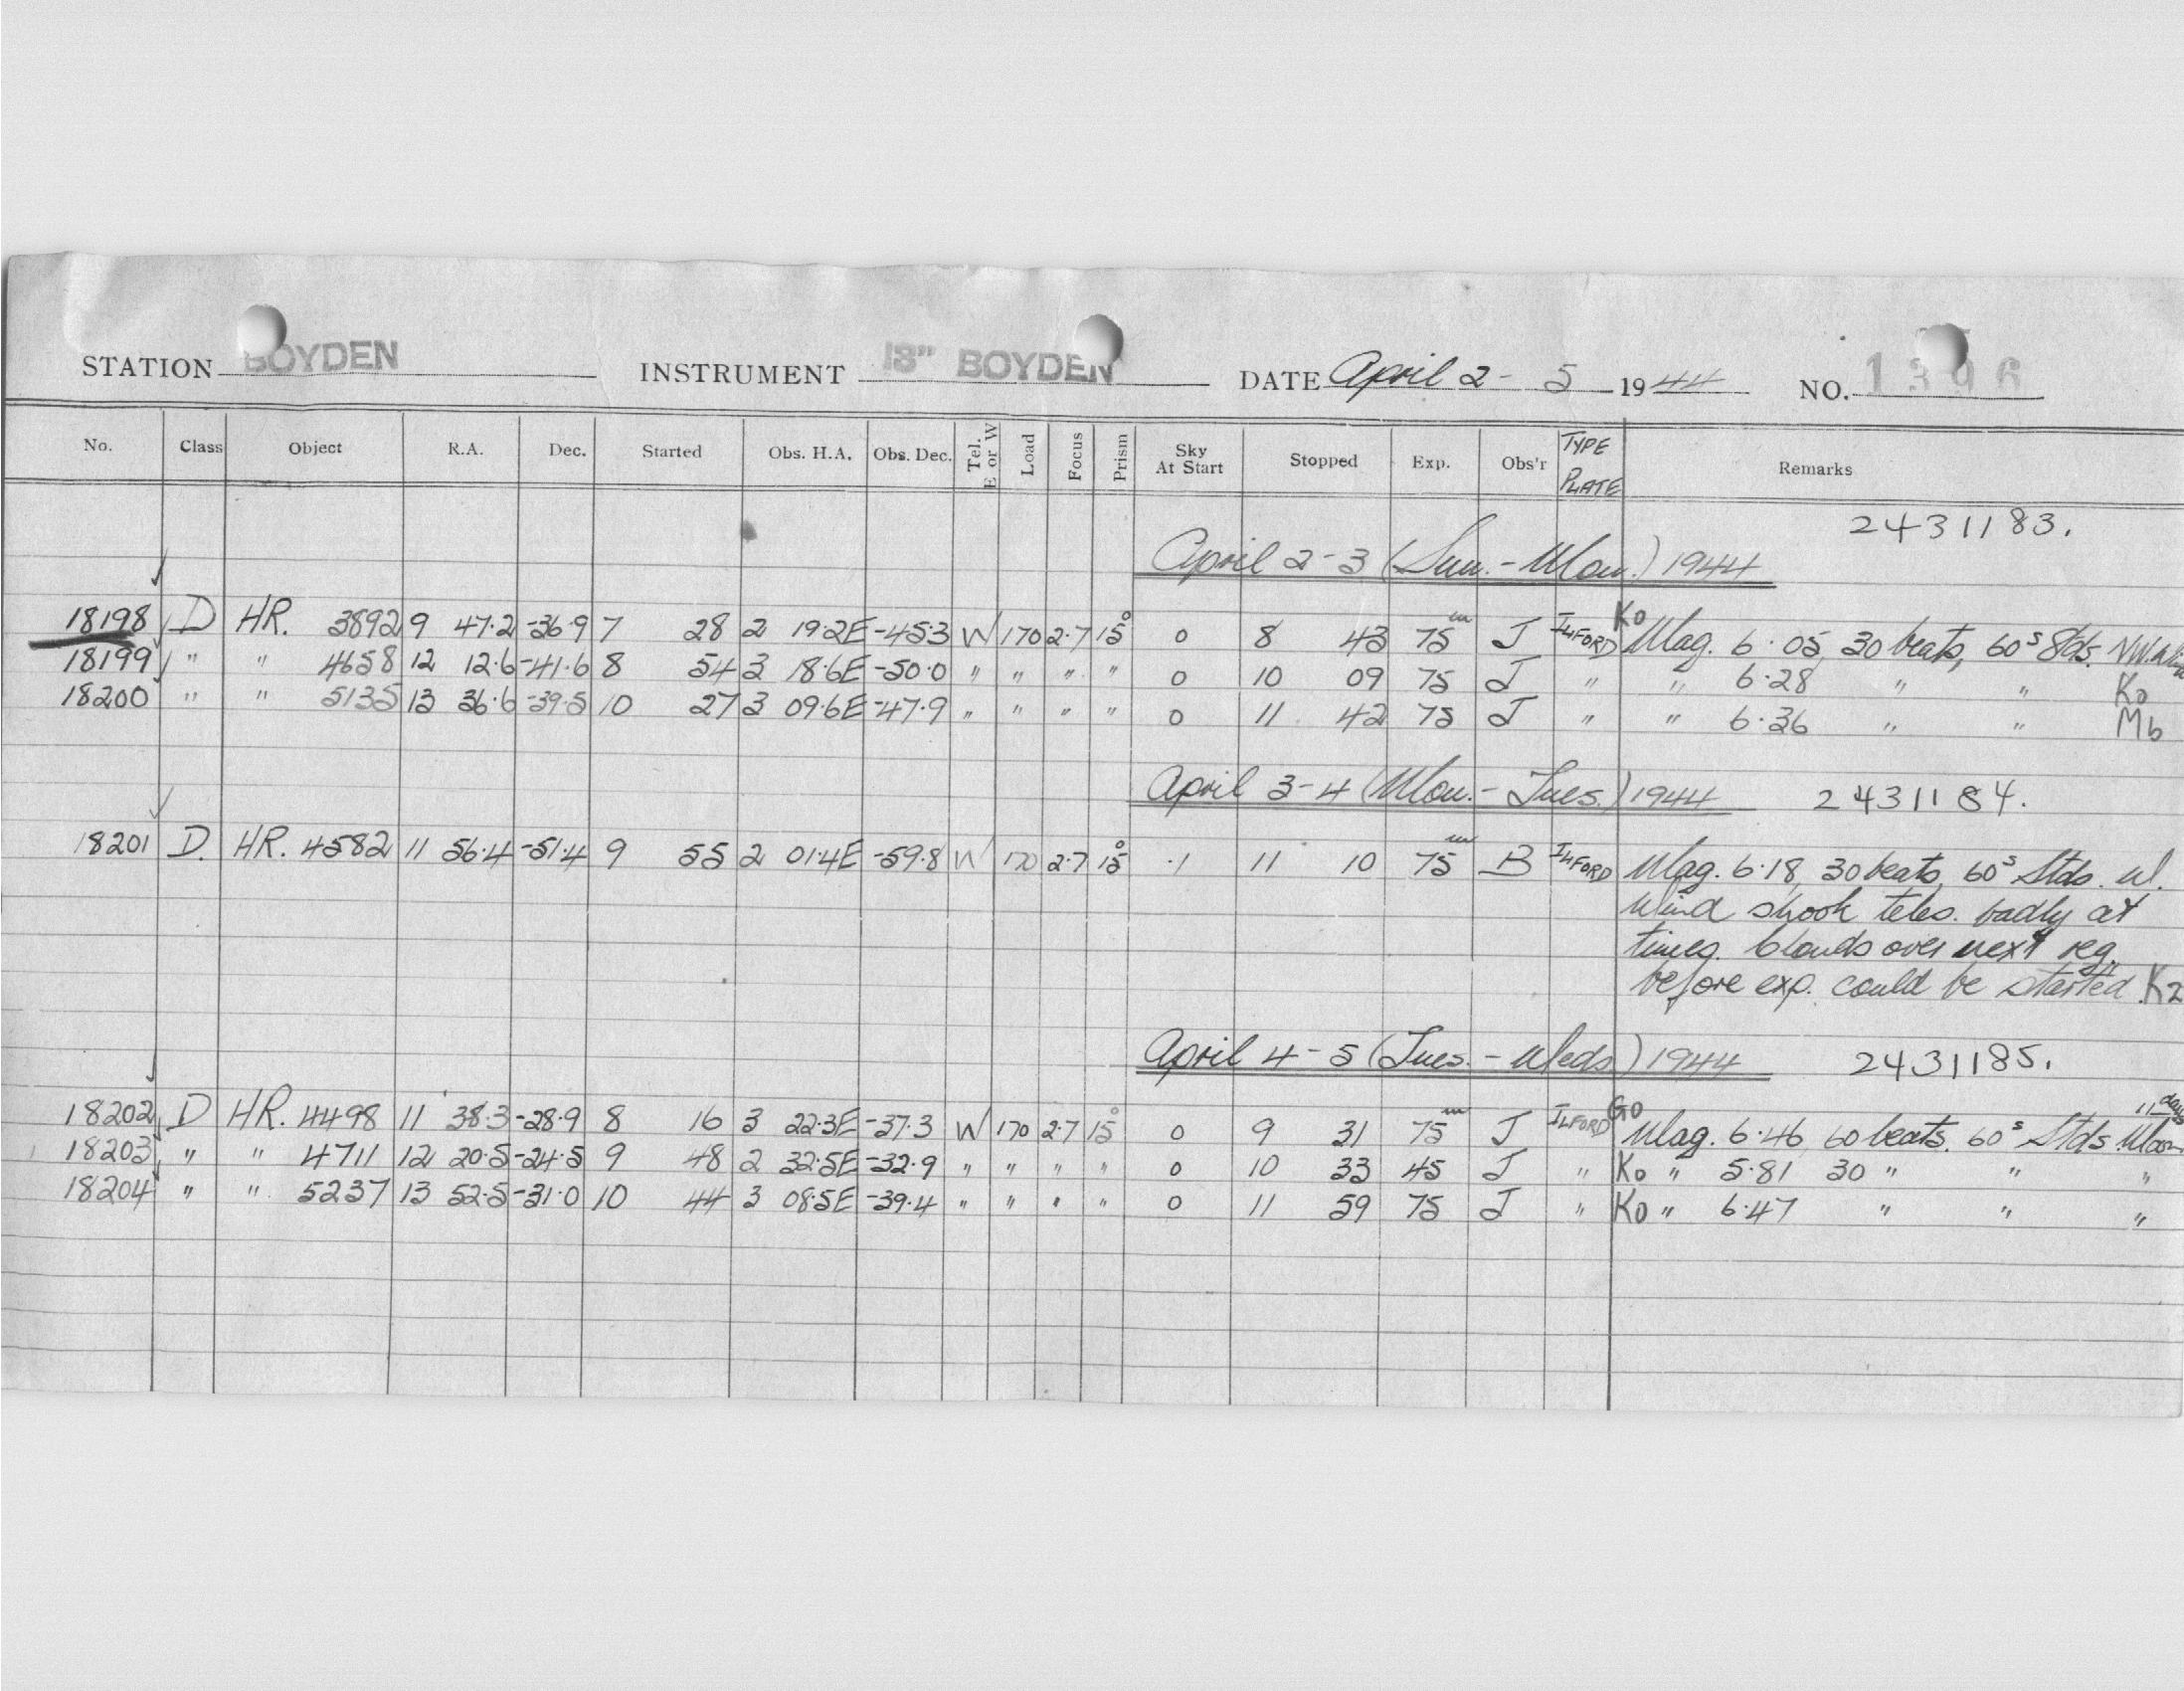 STATION BOYDEN INSTRUMENT 13" BOYDEN DATE April 2 - 5 1944 NO. 1396
No. Class Object R.A. Dec. Started Obs. H.A. Obs. Dec. Tel. E or W Load Focus Prism Sky At Start Stopped Exp. Obs'r TYPE PLATE Remarks
2431183.
April 2-3 (Sun. - Mon.) 1944
18198 D HR. 3892 9 47.2 -36.9 7 28 2 19.2E -45.3 W 170 2.7 15° 0 8 43 75m J ILFORD K0 Mag. 6.05, 30 beats, 60s Stds. NW.
18199 " " 4658 12 12.6 -41.6 8 54 3 18.6E -50.0 " " " " 0 10 09 75 J " " 6.28 " " K0
18200 " " 5135 13 36.6 -39.5 10 27 3 09.6E -47.9 " " " " 0 11 42 75 J " " 6.36 " " Mb
April 3-4 (Mon. - Tues.) 1944 2431184.
18201 D. HR. 4582 11 56.4 -51.4 9 55 2 01.4E -59.8 W 170 2.7 15° .1 11 10 75m B ILFORD Mag. 6.18, 30 beats, 60s Stds. W.
Wind shook teles. badly at
times. Clouds over next reg.
before exp. could be started. K2
April 4-5 (Tues. - Weds.) 1944 2431185.
18202 D HR. 4498 11 38.3 -28.9 8 16 3 22.3E -37.3 W 170 2.7 15° 0 9 31 75m J ILFORD G0 Mag. 6.46, 60 beats, 60s Stds. Moon 11 days
18203 " " 4711 12 20.5 -24.5 9 48 2 32.5E -32.9 " " " " 0 10 33 45 J " K0 " 5.81 30 " " "
18204 " " 5237 13 52.5 -31.0 10 44 3 08.5E -39.4 " " " " 0 11 59 75 J " K0 " 6.47 " " "